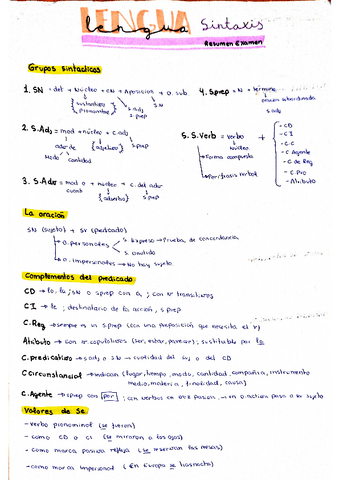 LENGUA
lengua Sintaxis
Resumen Examen
Grupos sintácticos
1. SN → det + Núcleo + CN + Aposición + O. sub.
{sustantivo
pronombre}
s. adj
s prep
SN
4. Sprep → N + término
oración subordinada
s. adj
2. S.Adj = mod + núcleo + c.adj
ador de
{adjetivo}
s prep
Modo cantidad
5. S.Verb = verbo +
Núcleo
→ Forma compuesta
→ Perífrasis verbal
- CD
- CI
- C.C
- C Agente
- C de Reg
- C Pro
- Atributo
3. S.Adv = mod o + núcleo + c. del adv
cuant
{adverbio}
s prep
La oración
SN (sujeto) + SV (predicado)
→ O. personales
→ S. Expreso → Prueba de concordancia
→ S. omitido
→ O. impersonales → No hay sujeto
Complementos del predicado
CD → lo, la; SN o sprep con a; con v transitivos
CI → le; destinatario de la acción, s prep
C. Reg → siempre es un s prep (con una preposición que necesita el v)
Atributo → con v. copulativos (ser, estar, parecer); sustituible por lo
C. predicativo → s adj o SN → cualidad del suj o del CD
C Circunstancial → indican (lugar, tiempo, modo, cantidad, compañía, instrumento
medio, materia, finalidad, causa)
C. Agente → sprep con por; con verbos en voz pasiva, → en o. activa pasa a su sujeto
Valores de Se
- verbo pronominal (se fueron)
- como CD o CI (se miraron a los ojos)
- como marca pasiva refleja (se reservan las mesas)
- como marca impersonal (En Europa se trasnocha)